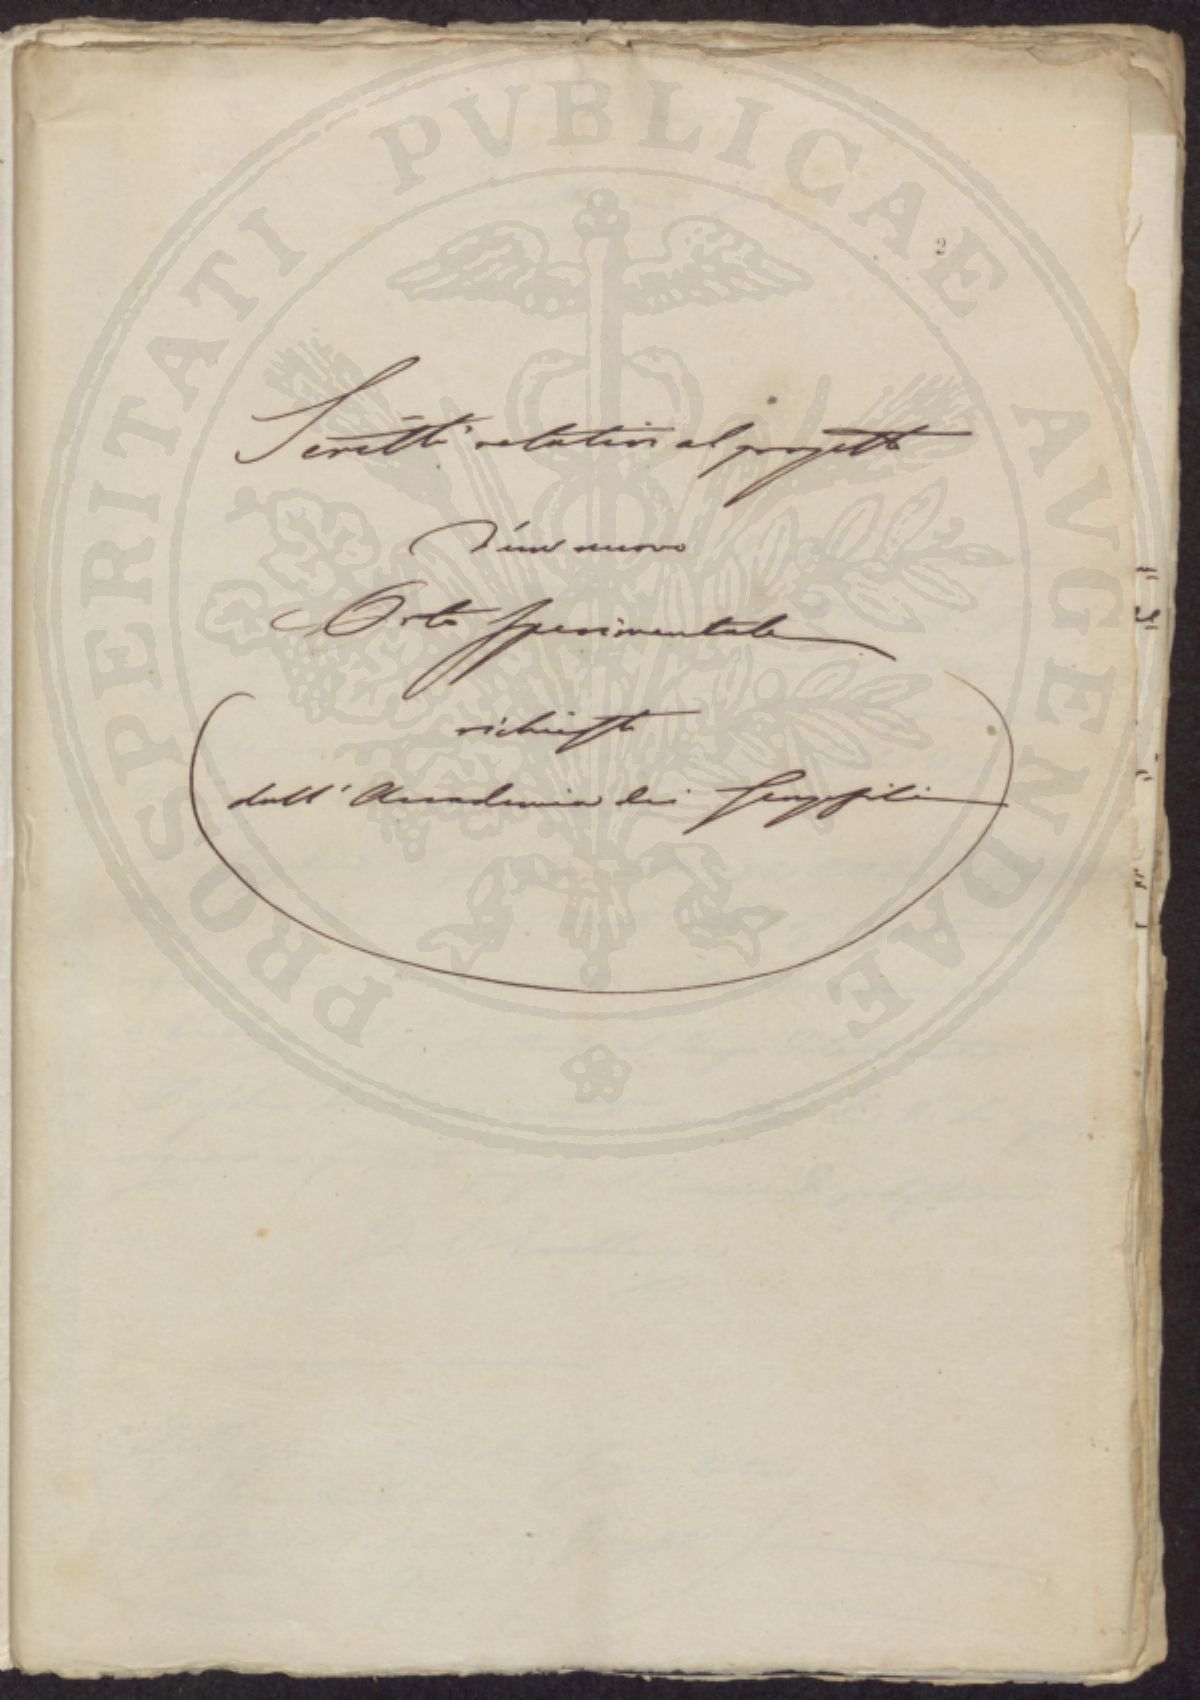 2
Scritti relativi al progetto
d'un nuovo
Orto sperimentale
richiesti
dall'Accademia dei Georgofili
PROSPERITATI PVBLICAE AVGENDAE